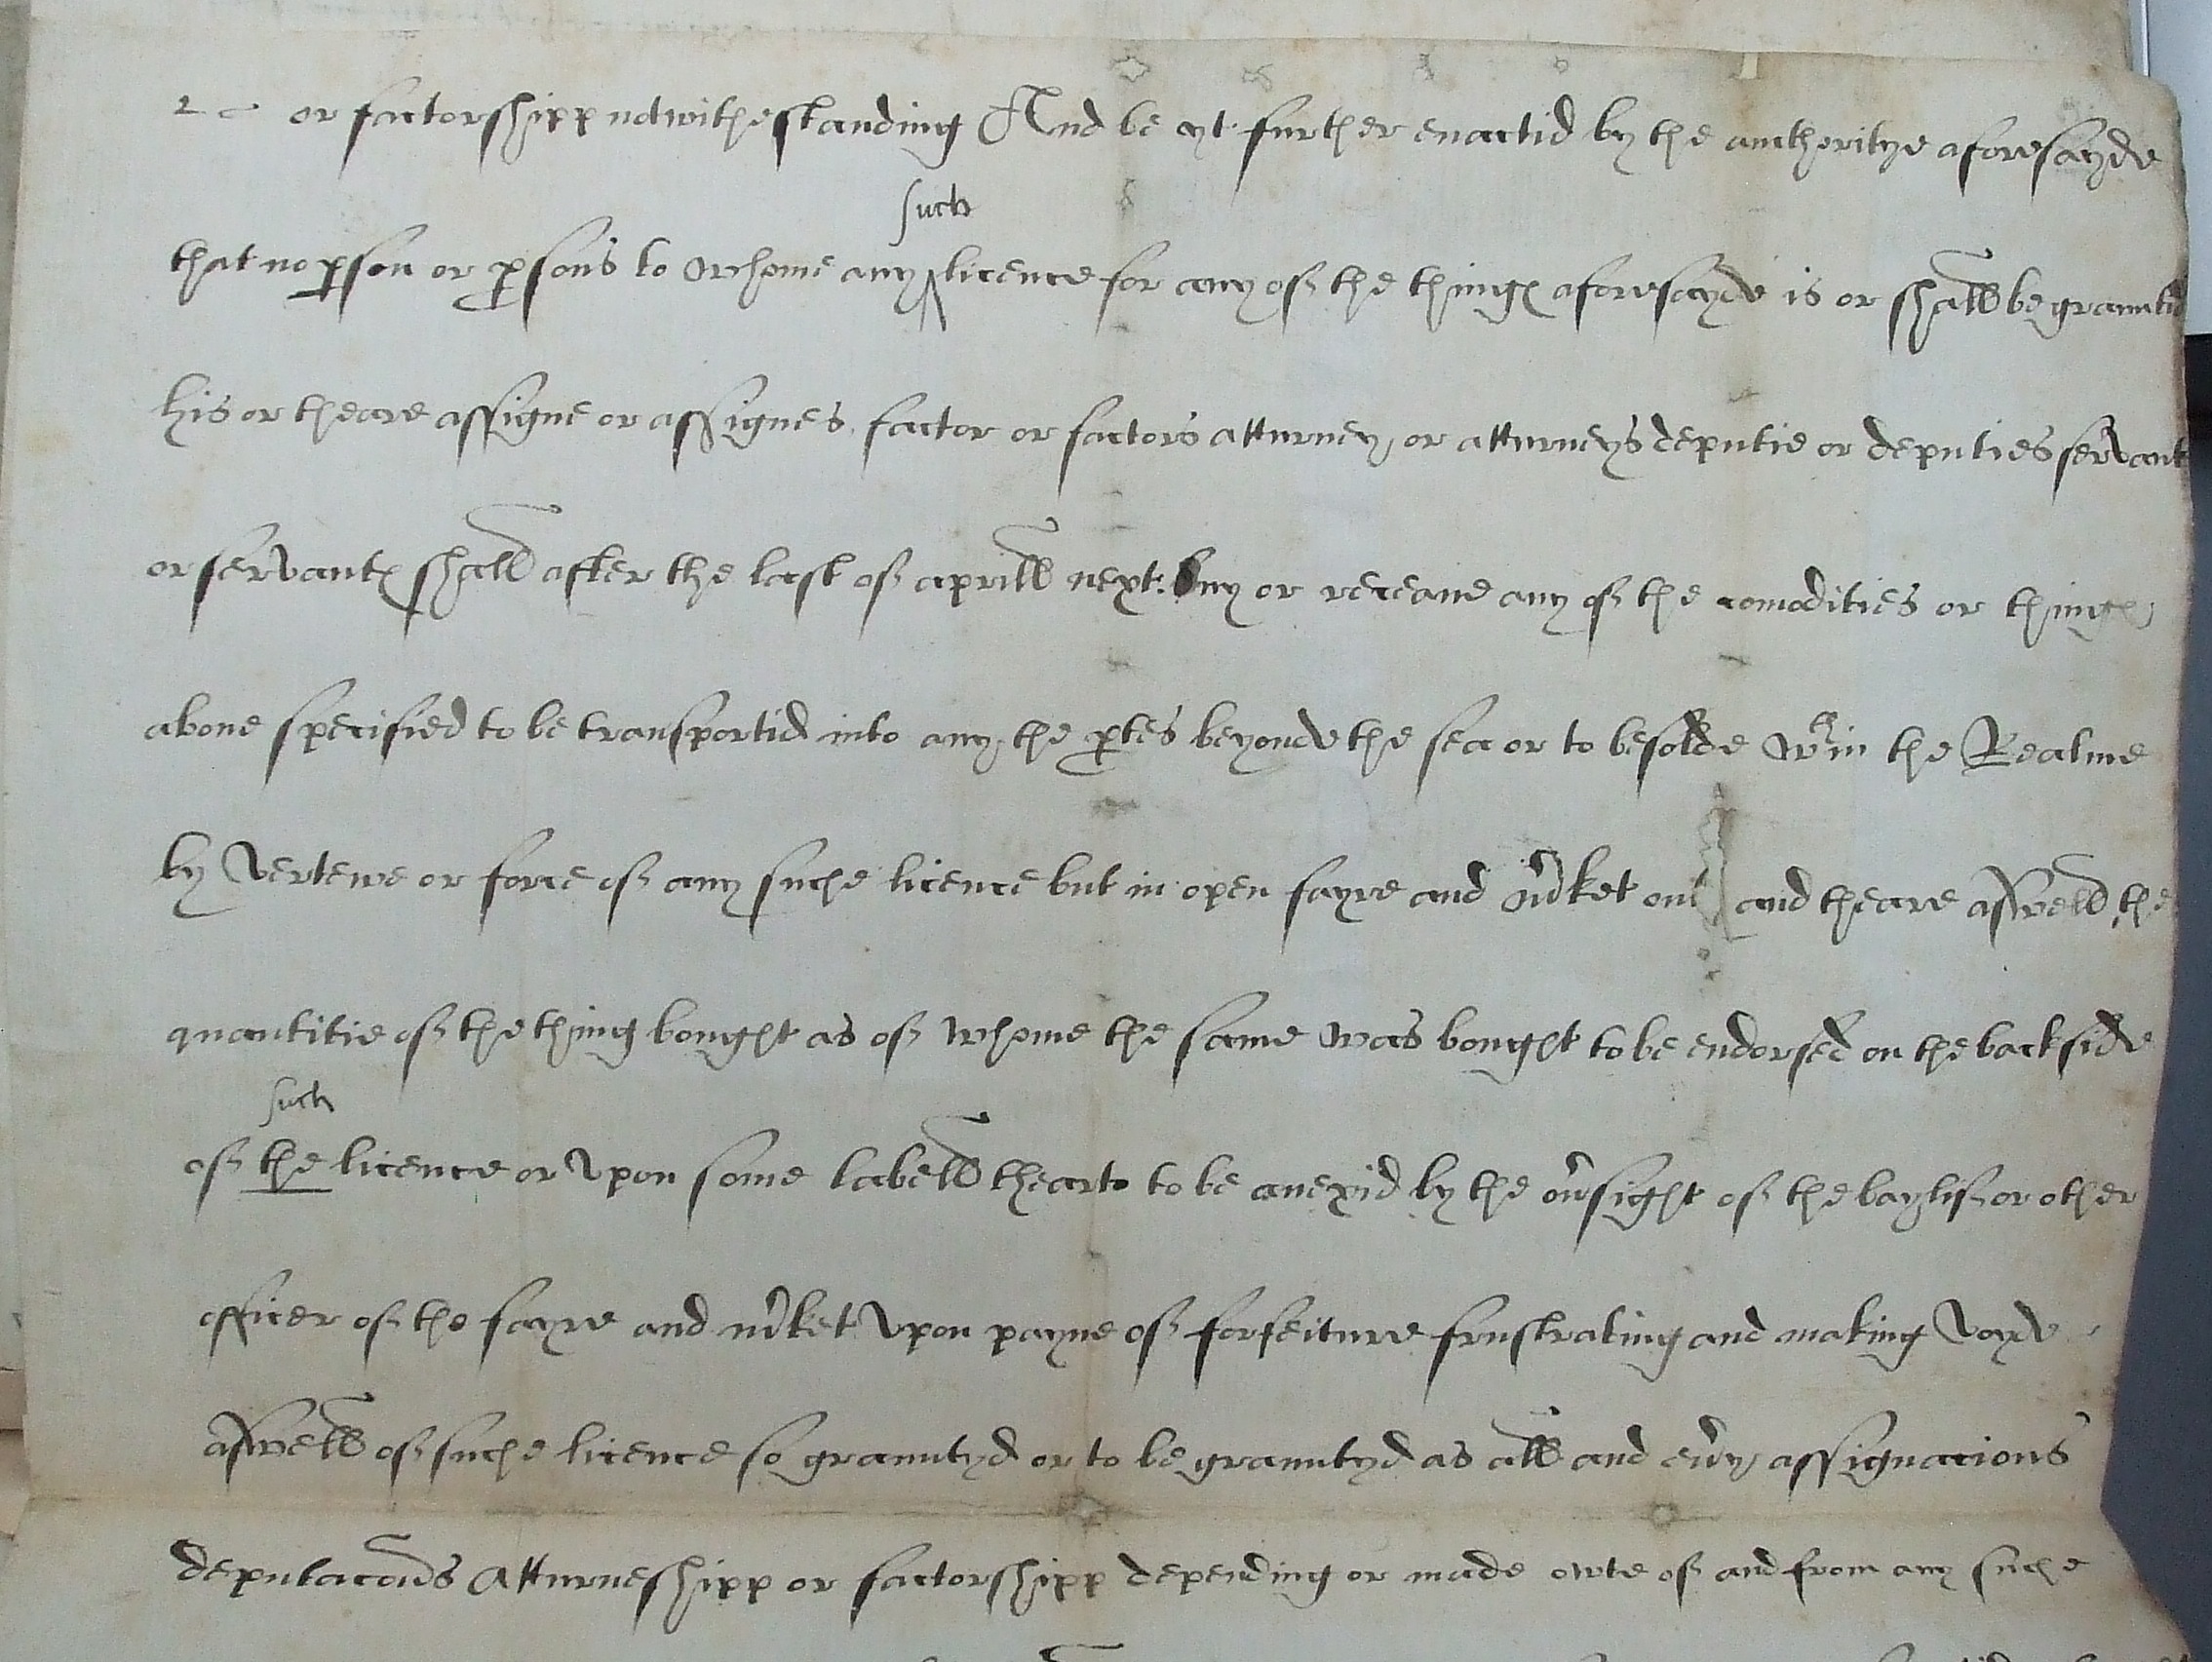 2 or factorshipp notwithestanding And be yt further enactid by the authoritye aforesayde
such
that no pson or psons to whome any licence for any of the things aforesayde is or shall be grauntid
his or theare assigne or assignes factor or factors atturney or atturneys deputie or deputies servant
or servantes shall after the last of aprill next buy or receaue any of the comodities or things
aboue specified to be transportid into any the ptes beyonde the sea or to be solde wthin the Realme
by vertewe or force of any suche licence but in open fayre and mket and theare aswell the
quantitie of the thing bought as of whome the same was bought to be endorsed on the backside
such
of the licence or vpon some labell thearto to be anexid by the ouersight of the baylif or other
officer of the fayre and mket vpon payne of forfeiture frustrating and making voyde
aswell of suche licence so grauntyd or to be grauntyd as all and euy assignacions
deputacons Atturneshipp or factorshipp depending or made owte of and from any suche